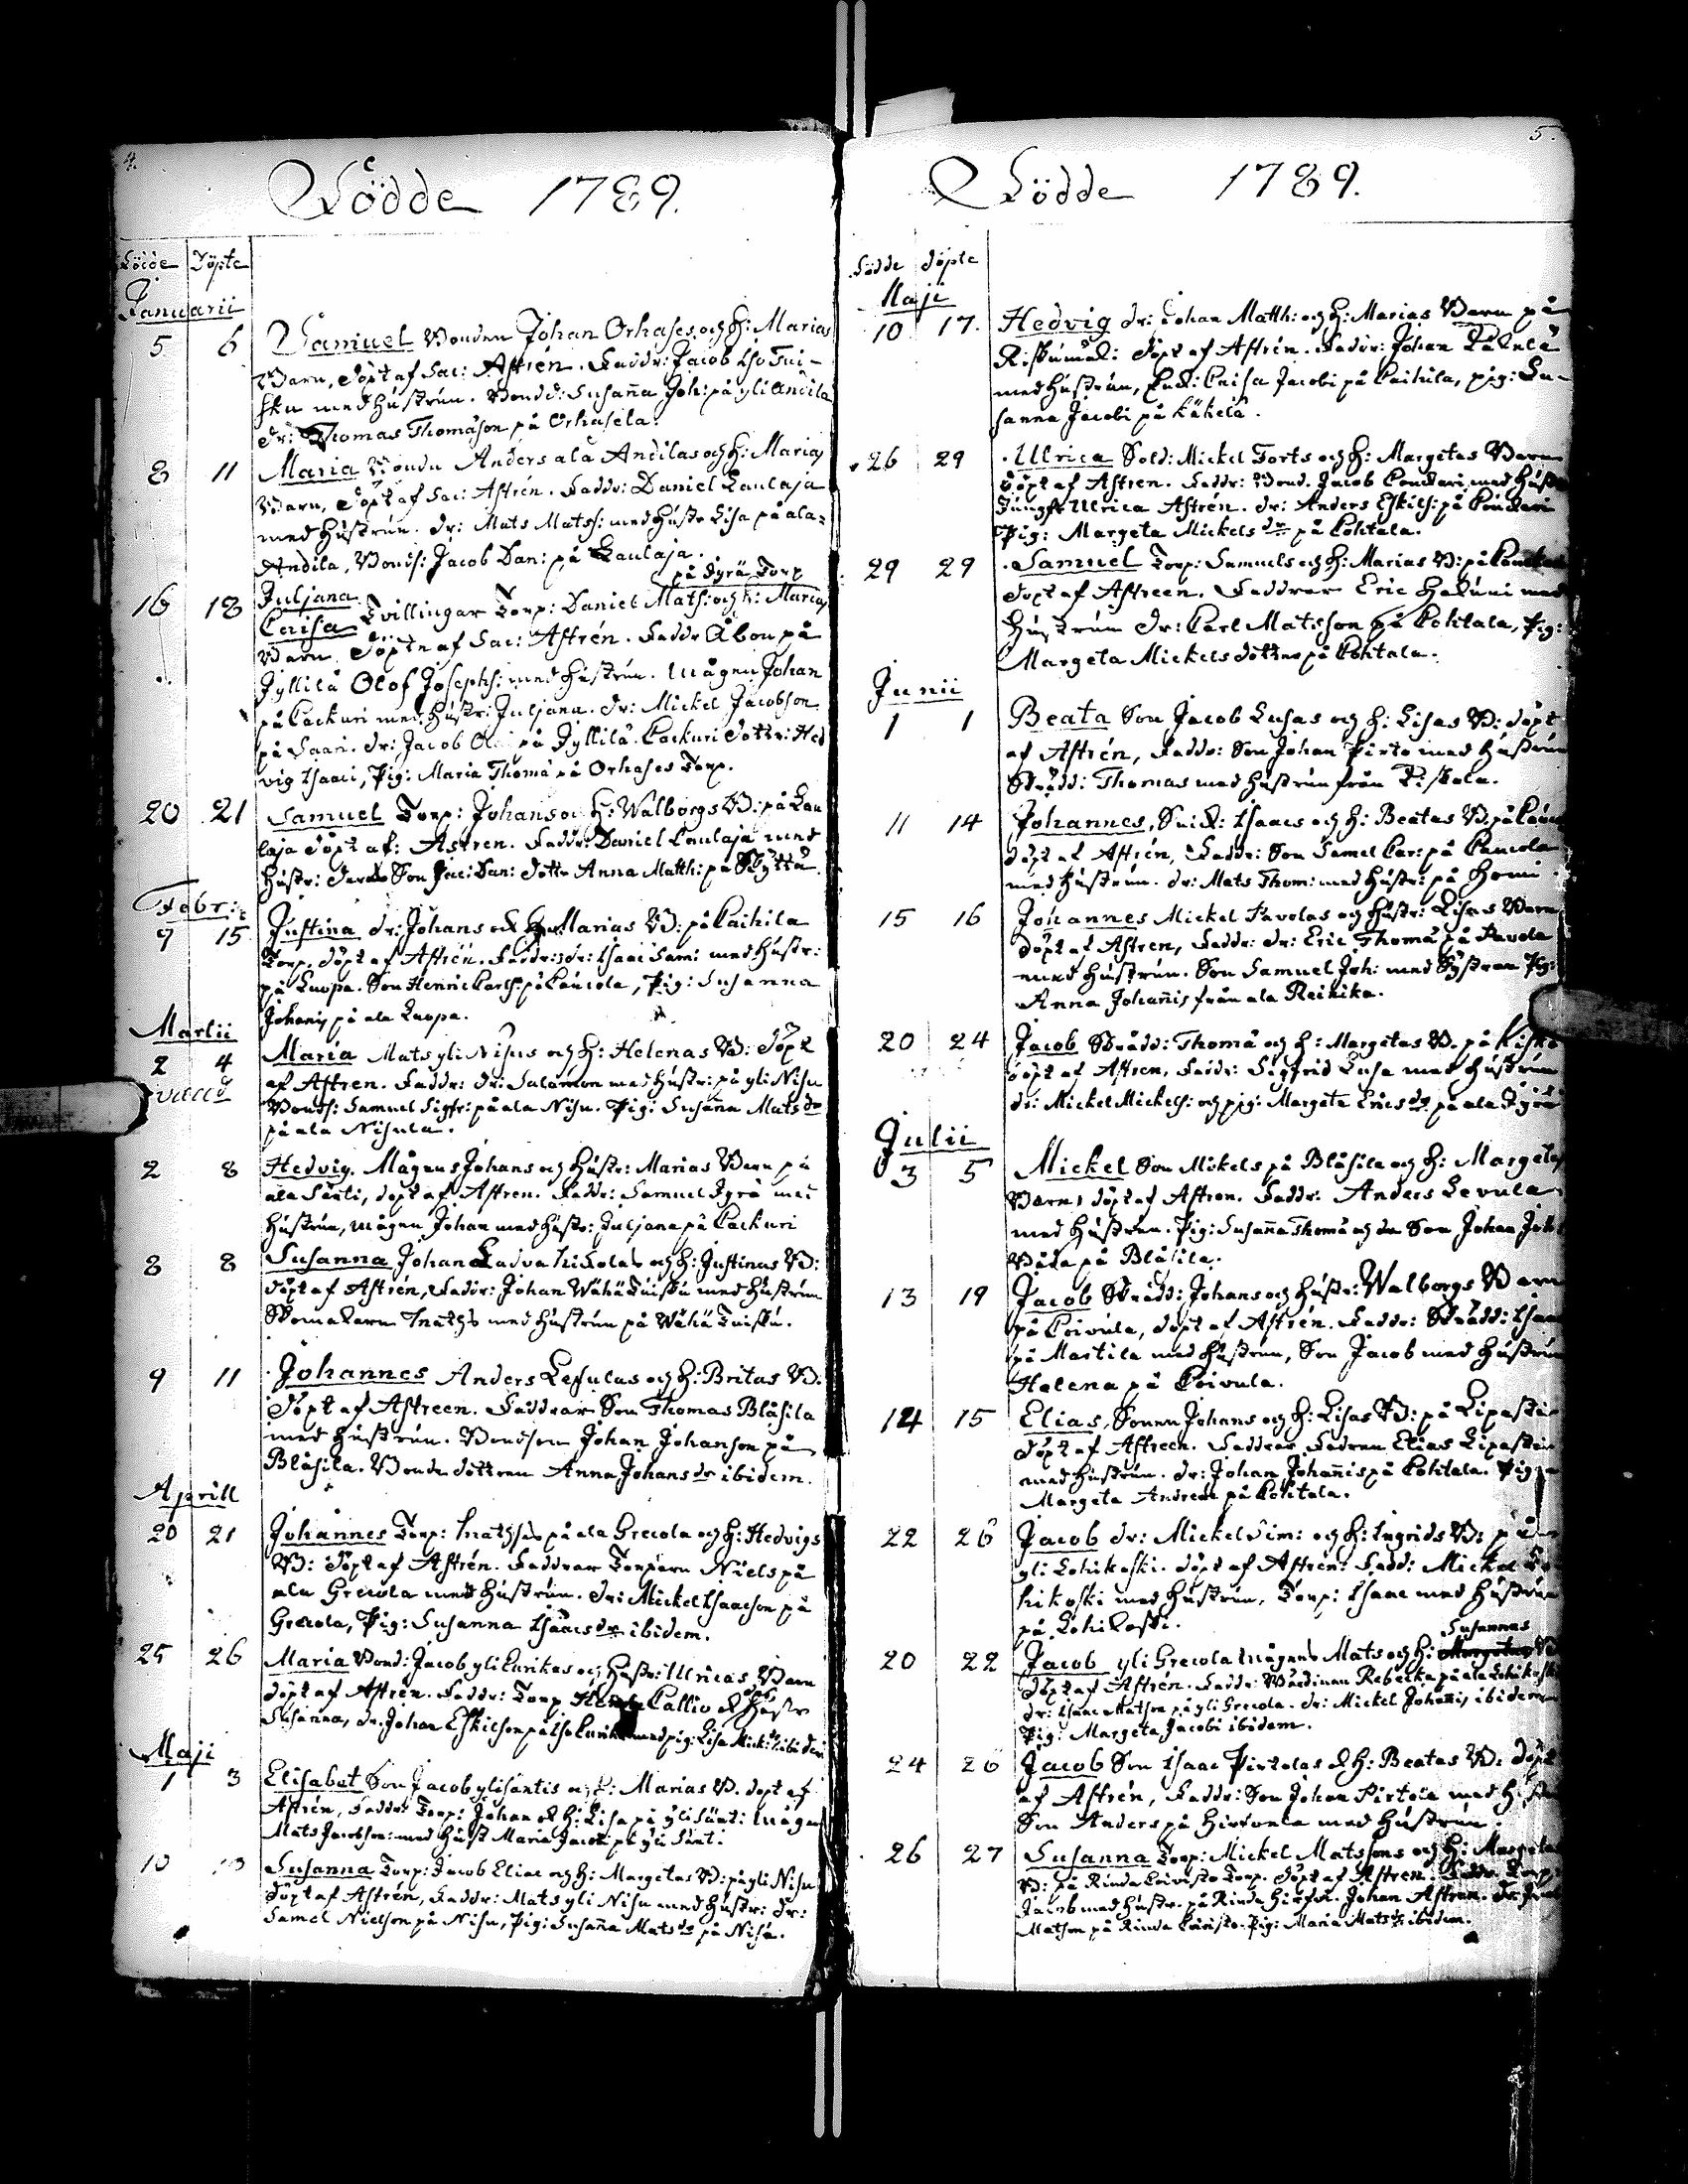 4.
Födde 1789.
Födde Döpte
Januarii
5 6 Samuel Bonden Johan Orhases och h: Marias
Barn, döpt af Sac: Astrén. Faddr: Jacob Iso Tui-
sku med hustrun. Bondd: Susanna Joh: på yli Andila
dr: Thomas Thomason på Orhasela.
8 11 Maria Bondn Anders ala Andilas och h: Marias
Barn, döpt af Sac: Astrén. Faddr: Daniel Laulaja
med hustrun. dr: Mats Matss: med hustr Lisa på ala-
Andila, Bonds: Jacob Dan: på Laulaja.
på Dyrä Torp
16 18 Juljana
Caisa Tvillingar Torp: Daniel Mats: och h: Marias
Barn. Döpte af Sac: Astrén. Faddr Åbon på
Jyllilä Olof Josephs: med hustrun. Mågen Johan
på Packuri med hustr: Juljana. dr: Mickel Jacobson
på Saari. dr: Jacob på Jyllilä. Packuri dottr: Hed
vig Isaaci, Pig: Maria Thomæ på Orhases Torp.
20 21 Samuel Torp: Johans o h: Walborgs B: på Lau
laja döpt af: Astren. Faddr: Daniel Laulaja med
hustr: Son Jac: Dan: dottr Anna Matth: på Skyttä.
Febr:
9 15 Justina dr: Johans & Marias B: på Caihila
Torp. döpt af Astrén. Faddr: dr: Isaac Sam: med hustr:
på Knopa. Son Henric Carls: på Laucola, Pig: Susanna
Johanis på ala Knopa.
Martii
2 4 Maria Mats yli Nisus och h: Helenas B: döpt
af Astren. Faddr: dr: Salamon med hustr: på yli Nisu
Bonds: Samuel Sigfr: på ala Nisu. Pig: Susanna Mats dr
på ala Nisula.
2 8 Hedvig. Mågens Johans och hustr: Marias Barn på
ala Sänti, döpt af Astren. Faddr: Samuel Dyrä med
hustrun, mågen Johan med hustr: Juljana på Packuri
8 8 Susanna Johan Ladva hickolas och h: Justinas B:
döpt af Astrén, Faddr: Johan Wähä Tuisku med hustrun
Skomakaren Mathts med hustrun på Wähä Tuisku.
9 11 Johannes Anders Lefulas och h: Britas B:
Döpt af Astreen. Faddrar Son Thomas Blåsila
med hustrun. Bondson Johan Johanson på
Blåsila. Bonde dottren Anna Johans dr ibidem.
Aprill
20 21 Johannes Torp: Mathts på ala Grecola och h: Hedvigs
B: döpt af Astrén. Faddrar Torparn Niels på
ala Grecola med hustrun. dr: Mickel Isaacson på
Grecola, Pig: Susanna Isaacs dr ibidem.
25 26 Maria Bond: Jacob yli Eurikas och hustr: Ulricas Barn
döpt af Astrén. Faddr: Torp Callio & hustr
Susanna, dr. Johan Eskilson på Iso med pig: Lisa Mick: ibidem
Maji
1 3 Elisabet Son Jacob yli Säntis och h: Marias B. döpt af
Astrén, Faddr: Torp: Johan & h: Lisa på yli Sänti: Mågen
Mats Jacobson: med hust Maria på yli Sänti
10 Susanna Torp: Jacob Eliae och h: Margetas B: på yli Nisu
döpt af Astrén, Faddr: Mats yli Nisu med hustr: dr:
Samel Nielson på Nisu, Pig: Susanna Mats dr på Nisu.
5.
Födde 1789.
Födde döpte
Maji
10 17. Hedvig dr: Johan Matth: och h: Marias Barn på
döpt af Astrén. Faddr: Johan Käkelä
med hustrun, Caisa Jacobi på Caihila, pig: Su-
sanna Jacobi på Käkelä.
26 29 Ulrica Sold: Mickel Forts och h: Margetas Barn
döpt af Astren. Faddr: Bond. Jacob med hustr
Jungfr Ulrica Astrén. dr: Anders Eskils: på
Pig: Margeta Mickels dr på Cohtala.
29 29 Samuel Torp: Samuels och h: Marias B: på
döpt af Astreen. Faddrar Eric Hakuni med
hustrun dr: Carl Matsson på Cohtala, Pig:
Margeta Mickels dotter på Cohtala.
Junii
1 1 Beata Son Jacob Lusas och h: Lisas B: döpt
af Astrén, Faddr: Son Johan Pirto med hustrun
Skrädd: Thomas med hustrun från Kiskola.
11 14 Johannes, Snick: Isaacs och h: Beatas B: på
döpt af Astrén, Faddr: Son Samel Car: på Laucola
med hustrun. dr: Mats Thom: med hustr: på Homi.
15 16 Johannes Mickel Pavolas och hustr: Lisas Barn
döpt af Astren, Faddr: dr: Eric Thomæ på Pavola
med hustrun. Son Samuel Joh: med Systren Pig:
Anna Johannis från ala Reinika.
20 24 Jacob Skrädd: Thomæ och h: Margetas B. på
döpt af Astren, Faddr: Sigfrid Lusa med hustrun
dr: Mickel Mickels: och pig: Margeta Erics dr på ala Dyrä
Julii
3 5 Mickel Son Mickels på Blåsila och h: Margetas
Barn, döpt af Astren. Faddr: Anders Levula
med hustrun. Pig: Susanna Thomæ och dr Son Johan
Båda på Blåsila.
13 19 Jacob Skrädd: Johans och hustr: Walborgs Barn
på Coivula, döpt af Astrén. Faddr: Skrädd: Isaac
på Martila med hustrun, Son Jacob med hustrun
Helena på Coivula.
14 15 Elias, Sonen Johans och h: Lisas B: på Lipasti
döpt af Astreen. Faddrar Fadren Elias Lipasti
med hustrun. dr: Johan Johannis på Cohtala. Pig
Margeta Andreæ på Cohtala.
22 26 Jacob dr: Mickel Sim: och h: Ingrids B: på
yli Lohikoski. döpt af Astrén: Fadd: Mickel Lo
hikoski med hustrun, Torp: Isaac med hustrun
på Lohikoski.
Susannas
20 22 Jacob yli Grecola Mågens Mats och h: Margetas
döpt af Astrén. Faddr: Wärdinnan Rebecka på ala Lohikoski
dr: Isaac Matson på yli Grecola. dr: Mickel Johannis ibidem
Pig: Margeta Jacobi ibidem.
24 26 Jacob Son Isaac Pirtolas & h: Beatas B: döpt
af Astrén, Faddr: Son Johan Pirtola med hustr
Son Anders på Hirvola med hustrun.
26 27 Susanna Torp: Mickel Matssons och h: Margetas
B: på Rinda Torp. döpt af Astren. Faddr: Torp:
Jacob med hustr. på Rinda Johan Astren. dr:
Matson på Rinda Pig: Maria Mats dr ibidem.